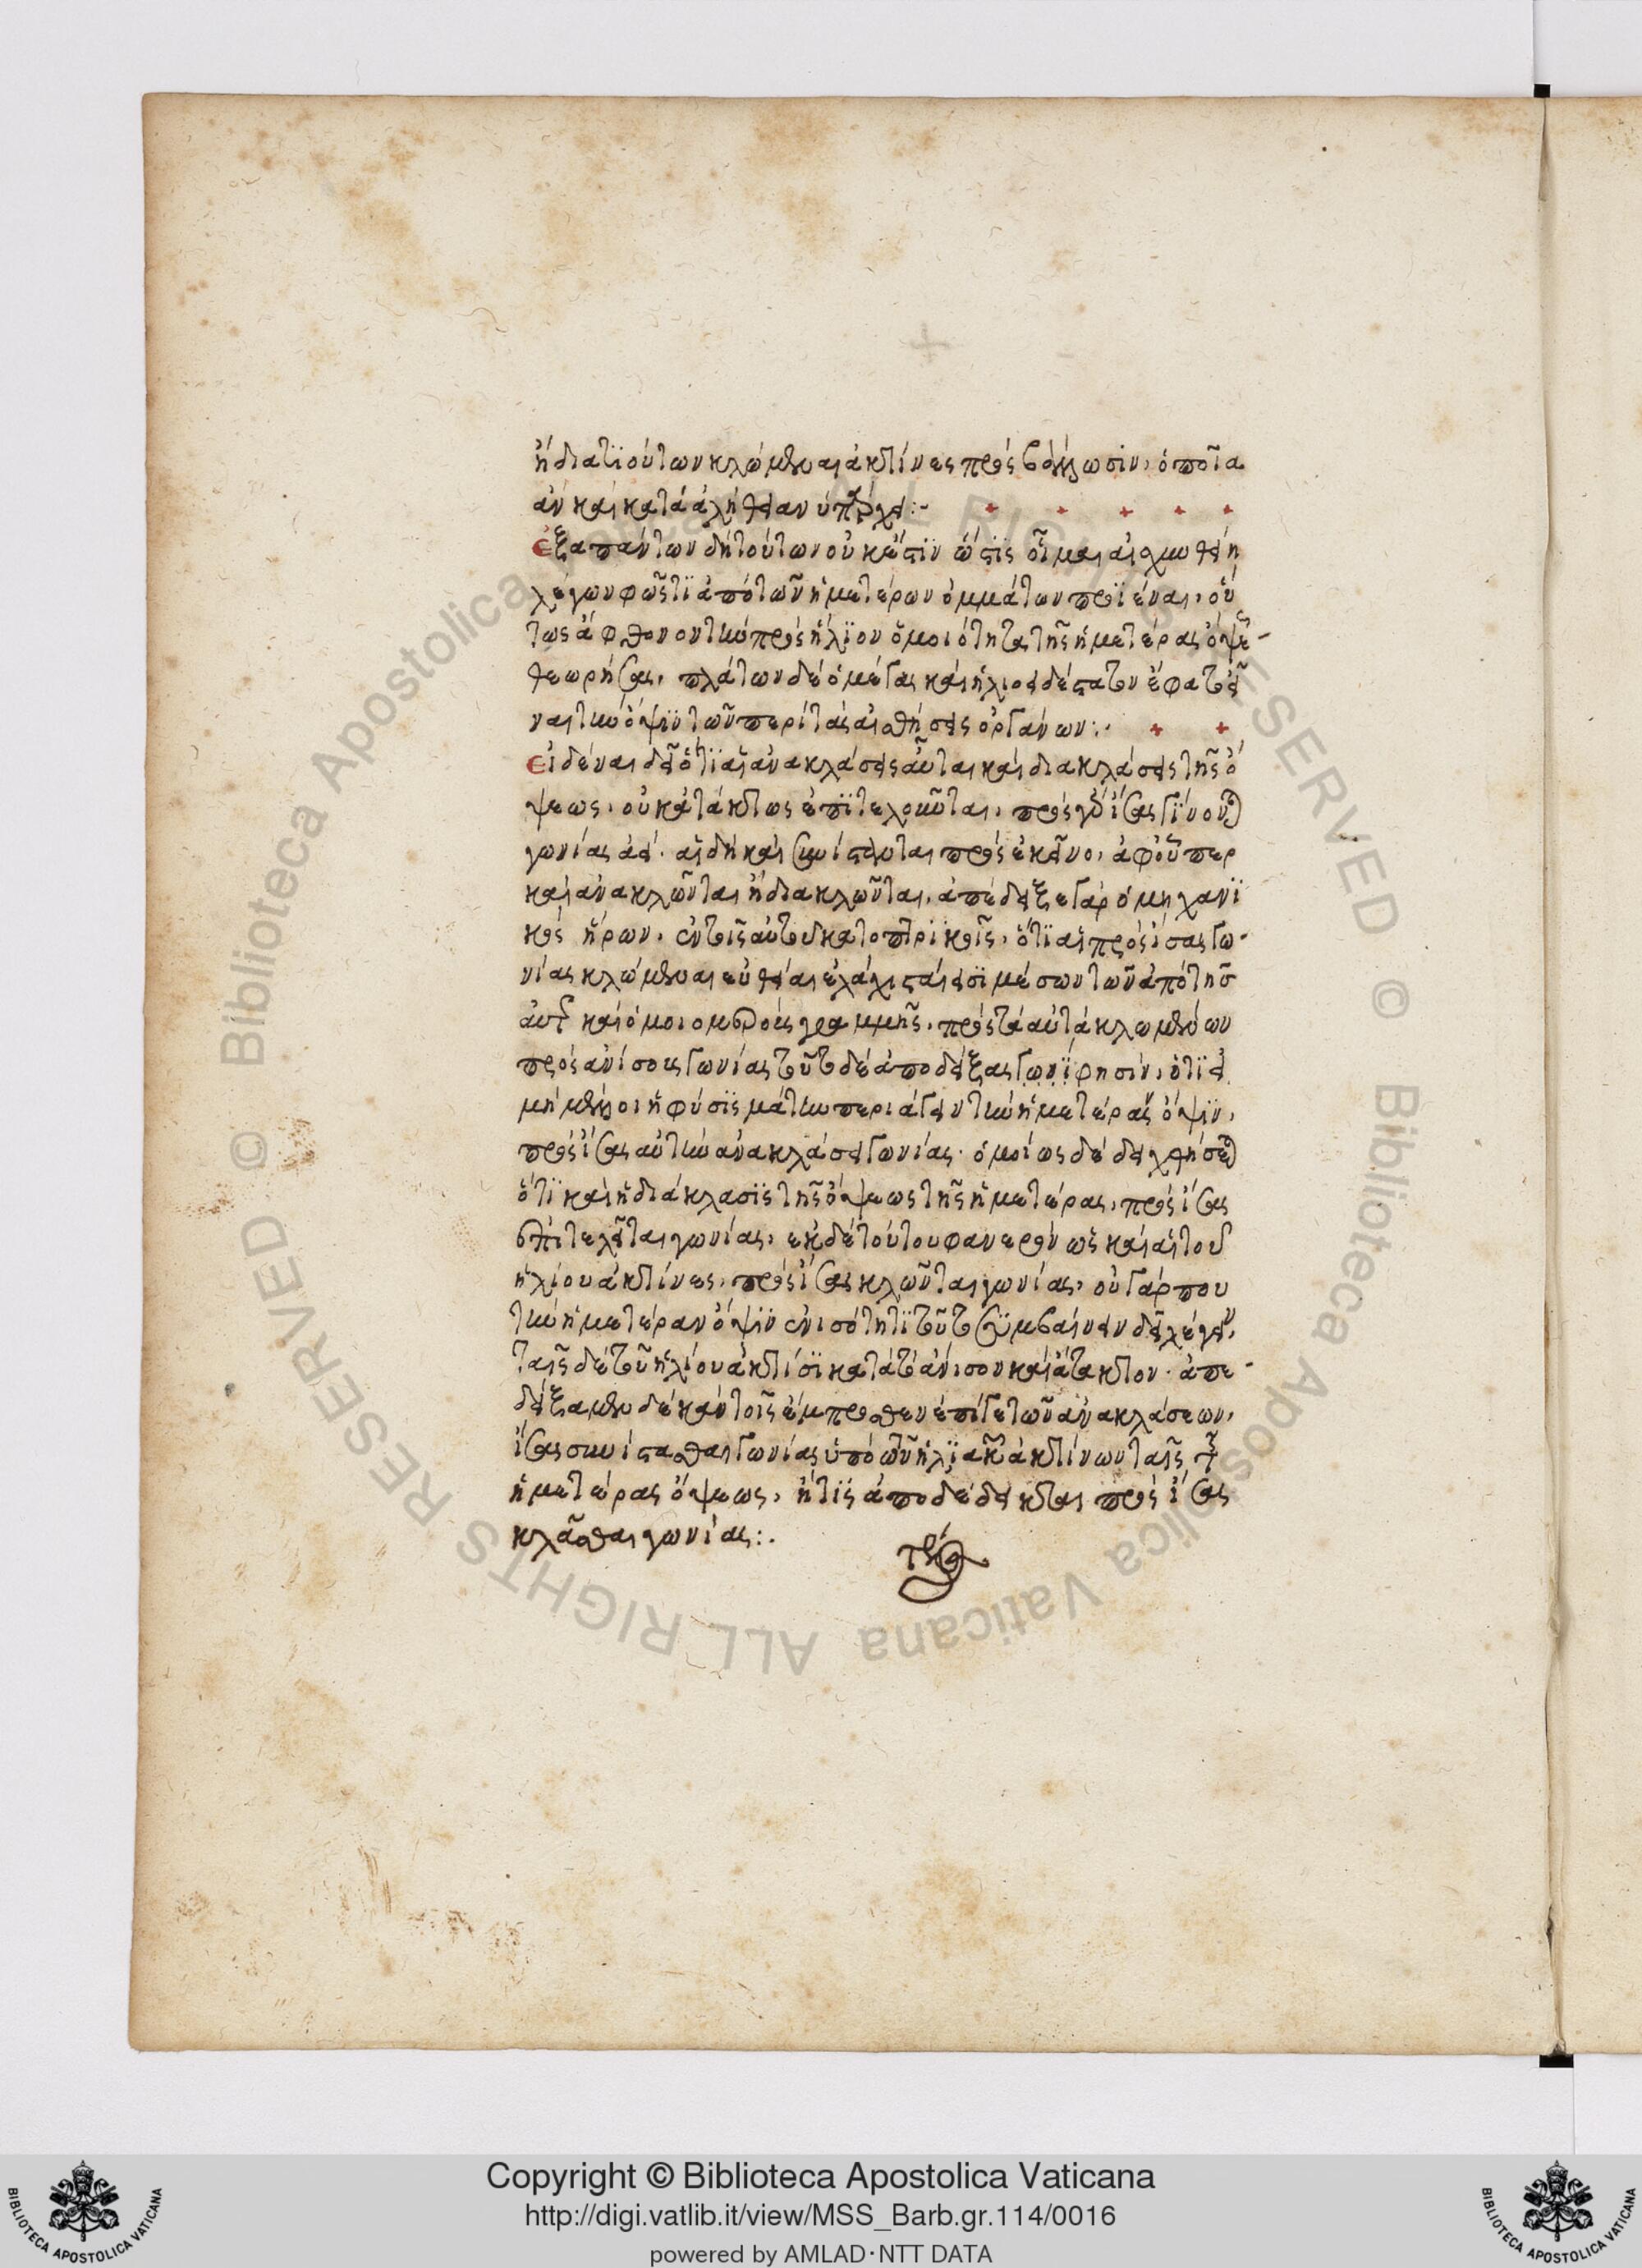 ἢ διά τι ούτων κλώμεναι ἀκτίνες πρὸς ὁποῖα
ἂν καὶ κατὰ ἀλήθειαν ὑπάρχει:-
ἐξ ἁπάντων δὴ τούτων οὐκ ὤστιν ὥς τις οἶμαι αἰσχυνθείη
λέγων φῶς τι ἀπὸ τῶν ἡμετέρων ὀμμάτων προϊέναι, οὕ
τως ἄφθονον τὴν πρὸς ἥλιον ὁμοιότητα τῆς ἡμετέρας ὄψεως
θεωρήσας, πλάτων δὲ ὁ μέγας καὶ ἡλιοειδέστατον ἔφατο εἶ
ναι τὴν ὄψιν τῶν περὶ τὰς αἰσθήσεις ὀργάνων:.
εἰδέναι δεῖ ὅτι αἱ ἀνακλάσεις αὗται καὶ διακλάσεις τῆς ὄ
ψεως, οὐκ ἀτάκτως ἐπιτελοῦνται, πρὸς γὰρ ἴσας γίνονται
γωνίας ἀεί. αἳ δὴ καὶ συνίστανται πρὸς ἐκεῖνο, ἀφ' οὗπερ
καὶ ἀνακλῶνται ἢ διακλῶνται, ἀπέδειξε γὰρ ὁ μηχανι
κὸς ἥρων, ἐν τοῖς αὐτοῦ κατοπτρικοῖς, ὅτι αἱ πρὸς ἴσας γω-
νίας κλώμεναι εὐθεῖαι ἐλάχισταί εἰσι μέσων τῶν ἀπὸ τῆς
αὐτῆς καὶ ὁμοιομεροῦς γραμμῆς, πρὸς τὰ αὐτὰ κλωμένων
πρὸς ἀνίσους γωνίας τοῦτο δὲ ἀποδείξας φησὶν, ὅτι εἰ
μὴ μέλλοι ἡ φύσις μάτην περιάγειν τὴν ἡμετέραν ὄψιν,
πρὸς ἴσας αὐτὴν ἀνακλάσει γωνίας. ὁμοίως δὲ δειχθήσεται
ὅτι καὶ ἡ διάκλασις τῆς ὄψεως τῆς ἡμετέρας, πρὸς ἴσας
ἐπιτελεῖται γωνίας, ἐκ δὲ τούτου φανερὸν ὡς καὶ αἱ τοῦ
ἡλίου ἀκτίνες, πρὸς ἴσας κλῶνται γωνίας, οὐ γάρ που
τὴν ἡμετέραν ὄψιν ἐν ἰσότητι τοῦτο συμβαίνειν δεῖ λέγειν,
ταῖς δὲ τοῦ ἡλίου ἀκτίσι κατὰ τὸ ἄνισον καὶ ἄτακτον. ἀπε-
δείξαμεν δὲ κἀν τοῖς ἔμπροσθεν ἐπί γε τῶν ἀνακλάσεων,
ἴσας συνίστασθαι γωνίας ὑπὸ τῶν ἡλιακῶν ἀκτίνων ταῖς τῆς
ἡμετέρας ὄψεως, ἥτις ἀποδέδεικται πρὸς ἴσας
κλᾶσθαι γωνίας:.
τέλος
Copyright © Biblioteca Apostolica Vaticana
http://digi.vatlib.it/view/MSS_Barb.gr.114/0016
powered by AMLAD·NTT DATA
BIBLIOTECA APOSTOLICA VATICANA
BIBLIOTECA APOSTOLICA VATICANA
© Biblioteca Apostolica Vaticana ALL RIGHTS RESERVED
© Biblioteca Apostolica Vaticana ALL RIGHTS RESERVED